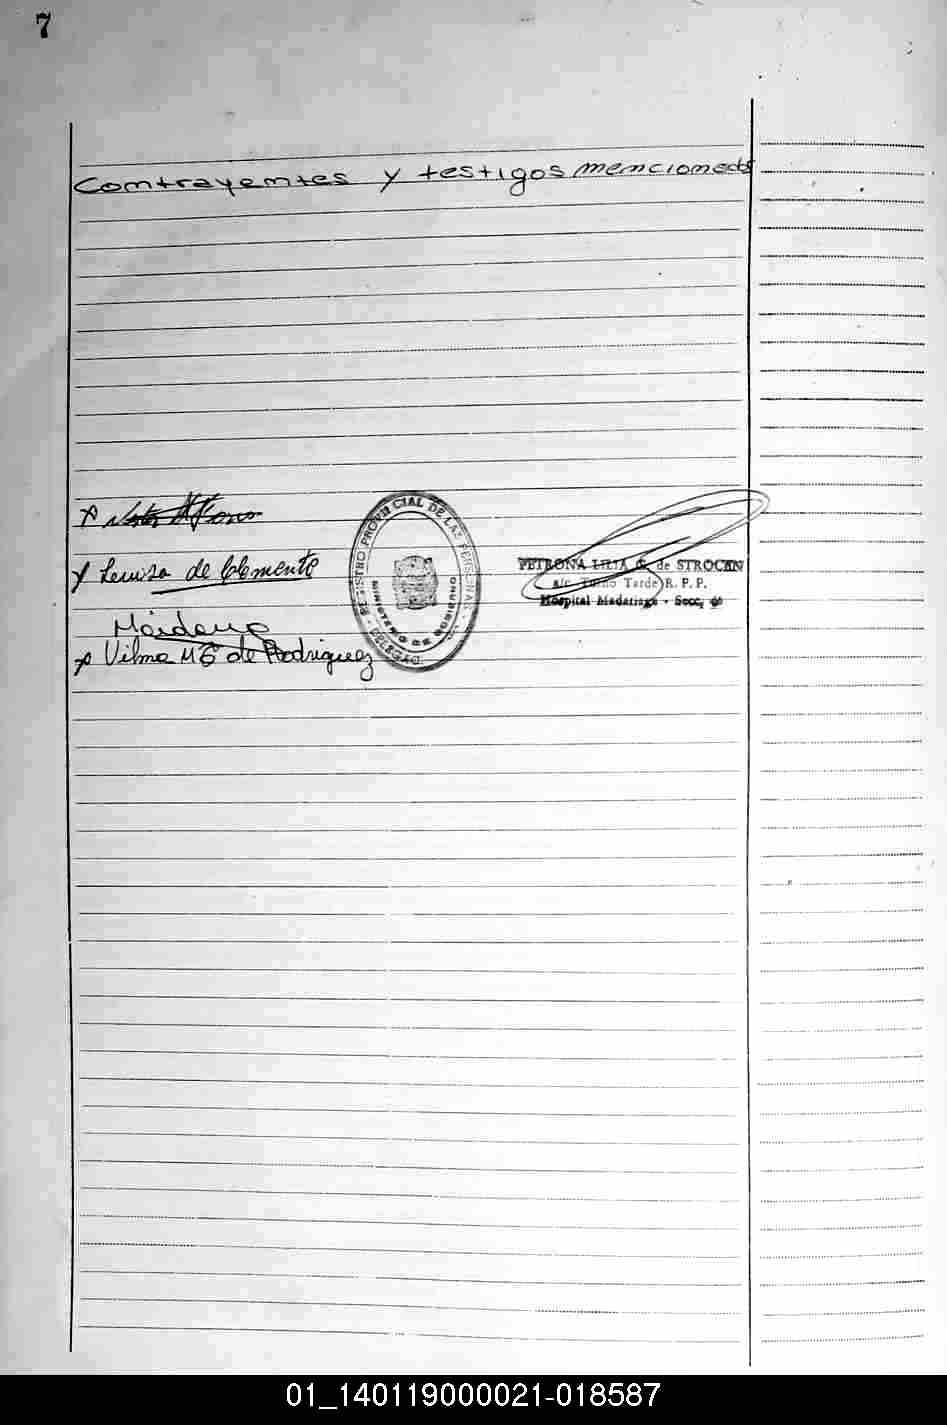 7
Contrayentes y testigos mencionados
x Nestor Alfonso
y Luisa de Clemente
x Vilma M G de Rodriguez
REGISTRO PROVINCIAL DE LAS PERSONAS
MINISTERIO DE GOBIERNO
DELEGAC.
PETRONA LILIA G. de STROCEN
a/c. Turno Tarde R. P. P.
Hospital Madariaga - Secc,
01_140119000021-018587